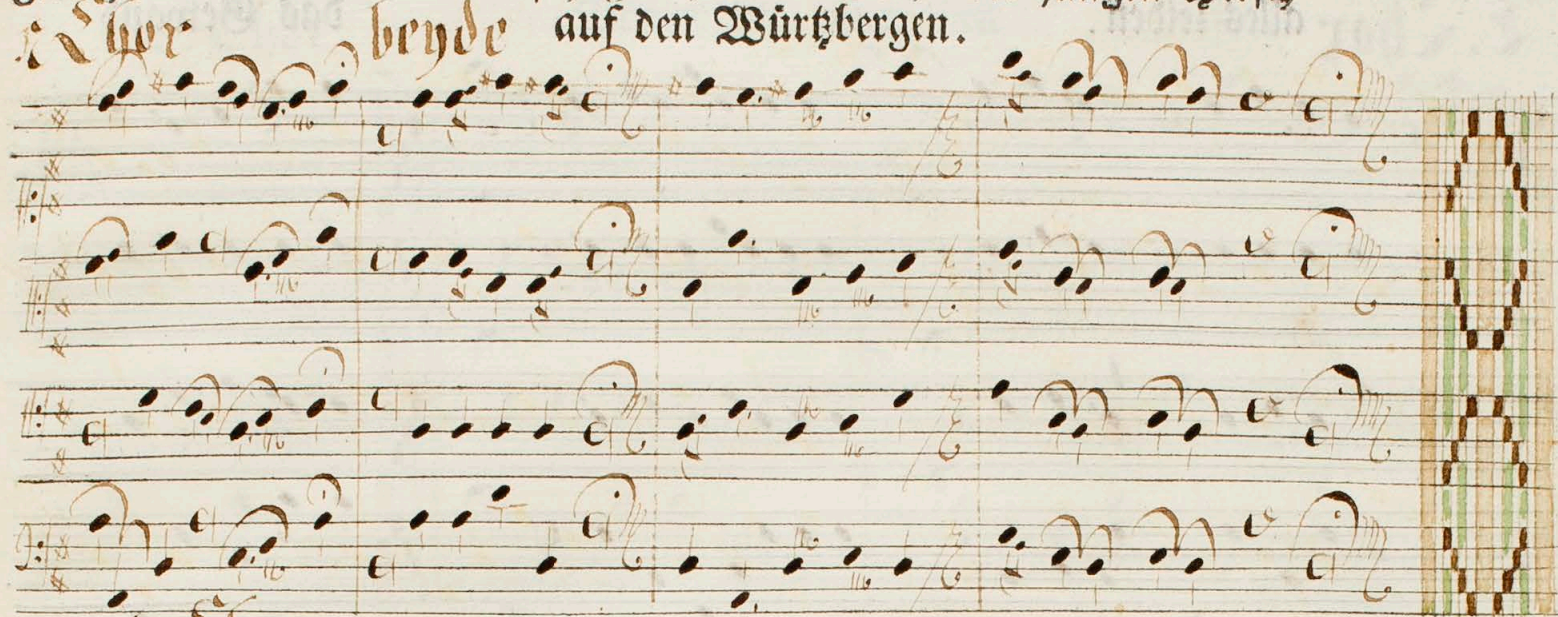 Chor beyde auf den Würtzbergen.